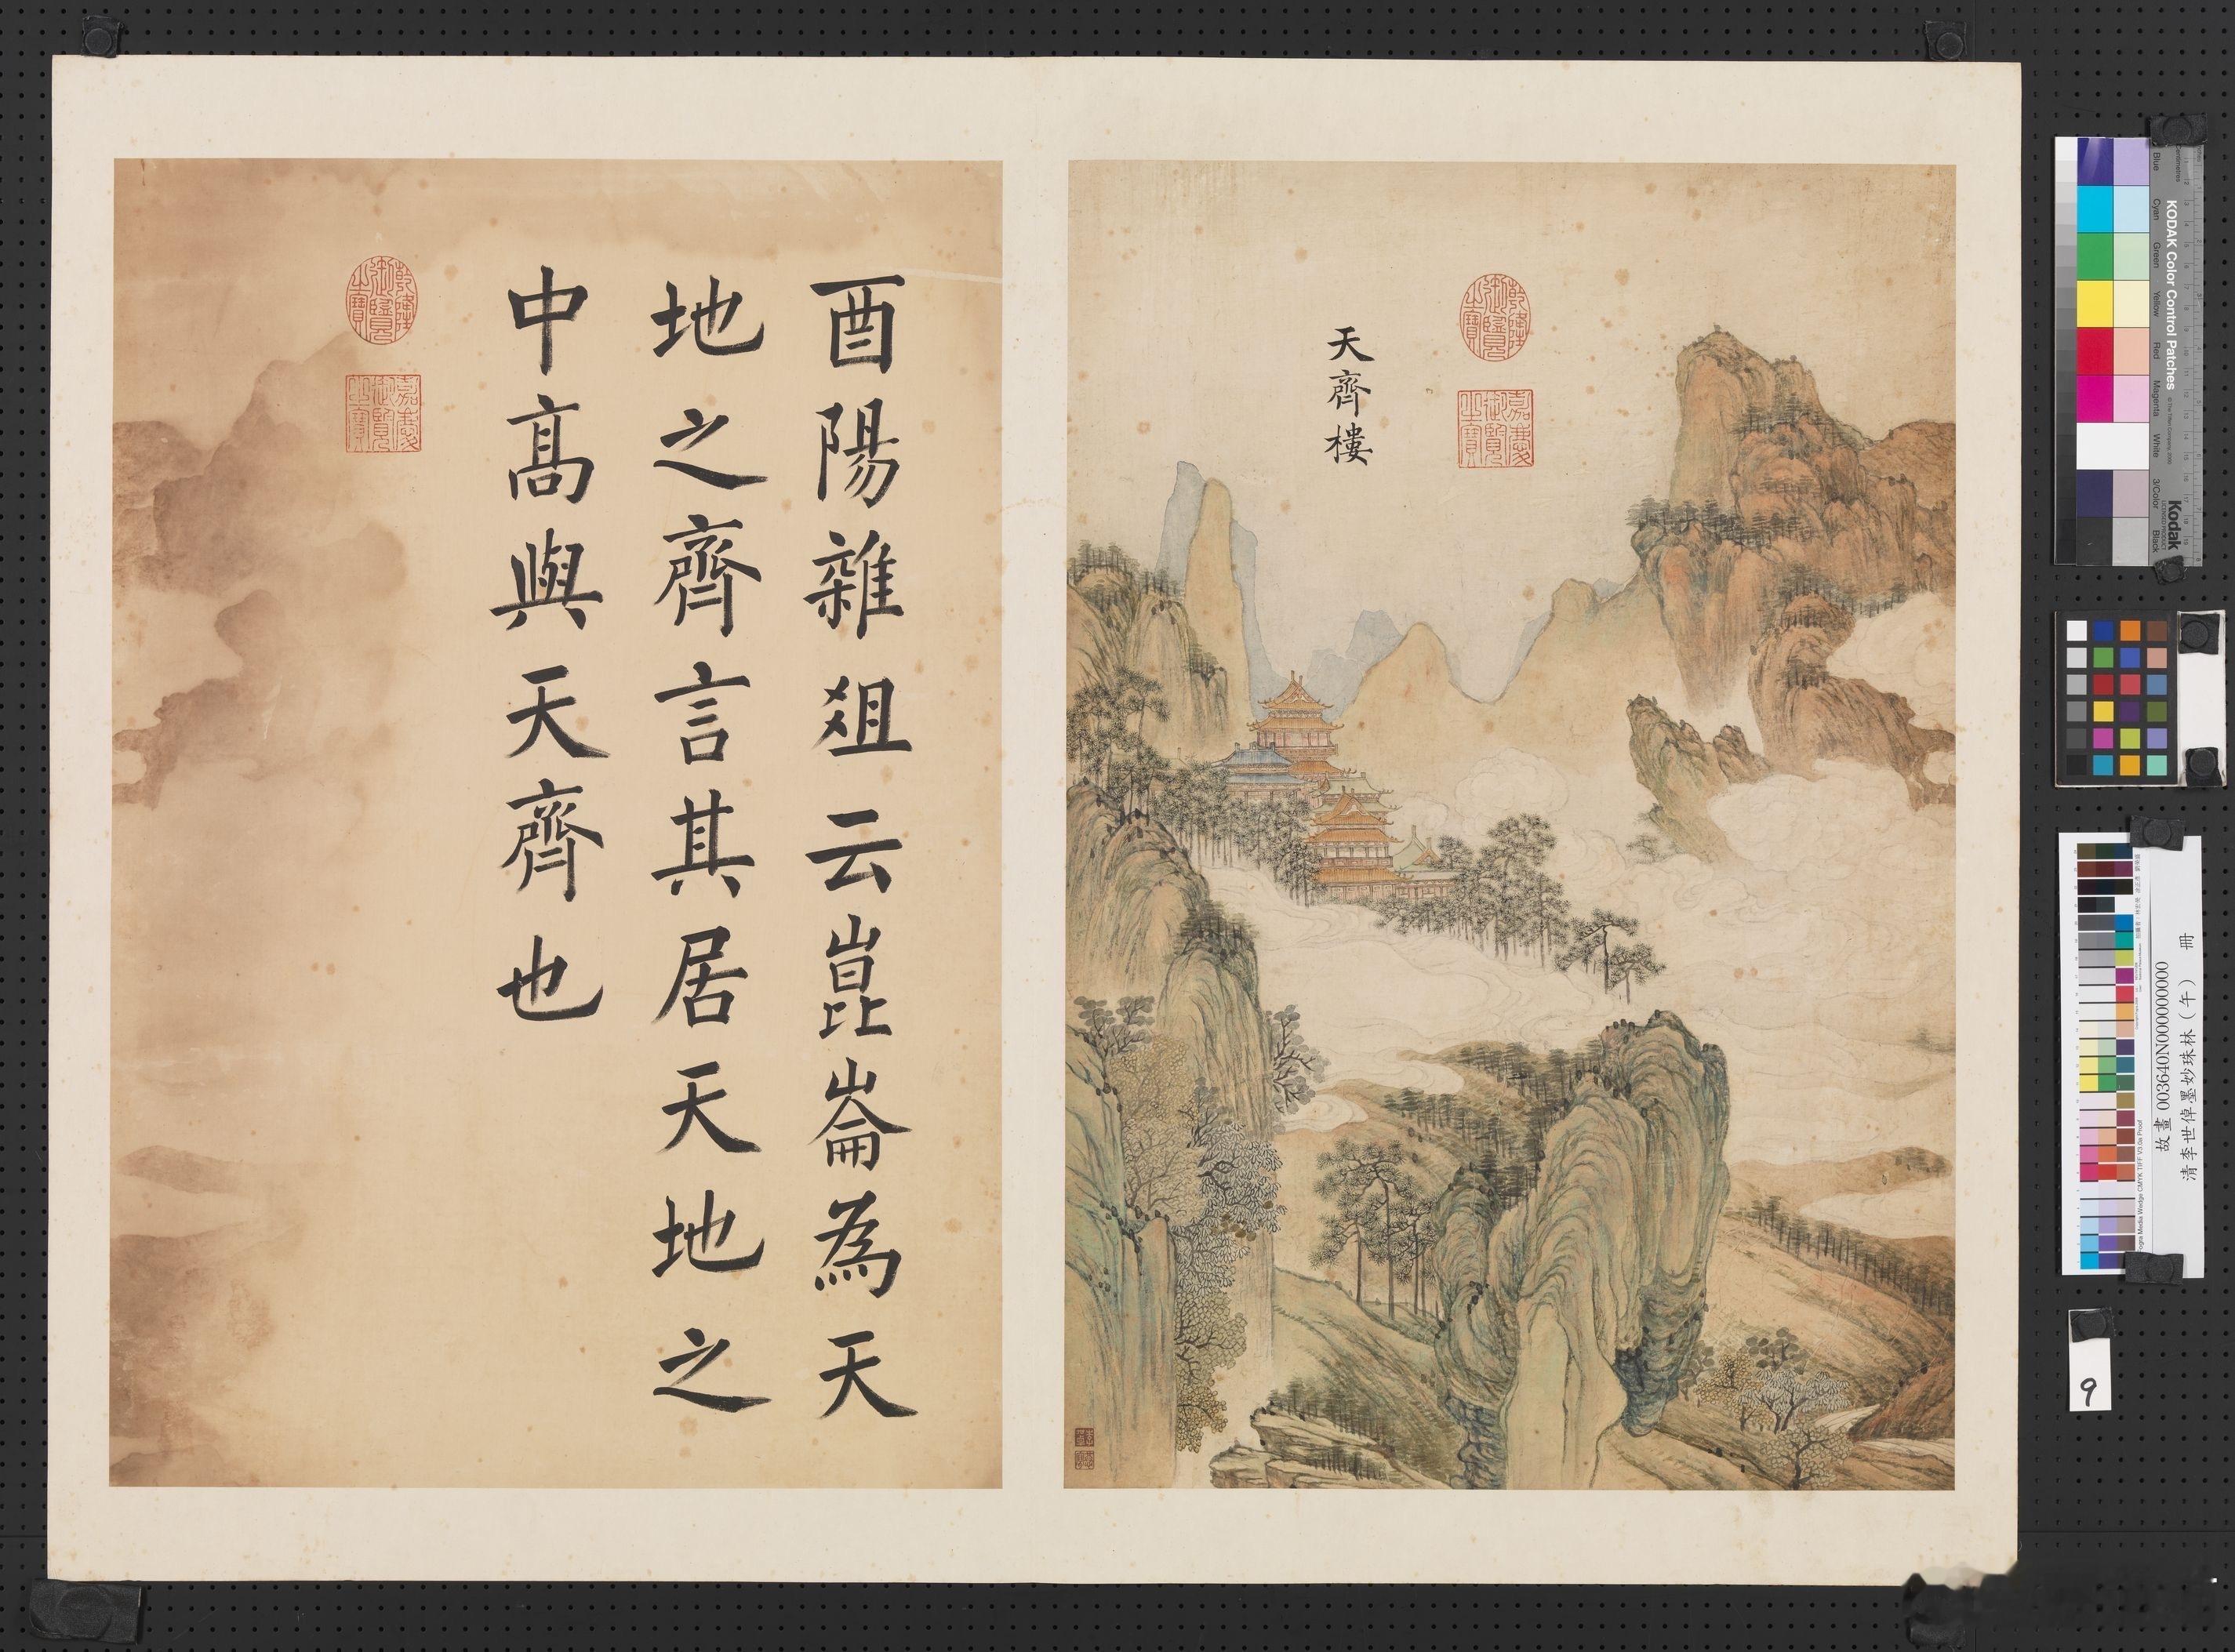 天齊樓
乾隆御覽之寶
嘉慶御覽之寶
酉陽雜爼云崑崙為天
地之齊言其居天地之
中髙與天齊也
乾隆御覽之寶
嘉慶御覽之寶
KODAK Color Control Patches
Kodak
Blue
Cyan
Green
Yellow
Red
Magenta
White
3/Color
Black
故畫 003640N000000000
清李世倬墨妙珠林（午） 冊
9